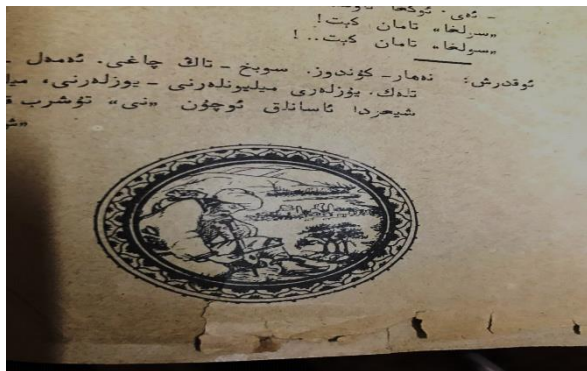 - ئەي، ئوڭغا
„سولغا" تامان كېت!
„سولغا" تامان كېت..!
ئوقدرش: نەھار - كۈندوز. سوبخ - تاڭ چاغى. ئەمەل -
تلەك. يۈزلەرى ميليونلەرنى - يوزلەرنى،
شېعردا ئاسانلق ئوچۇن „نى" تۇشرپ